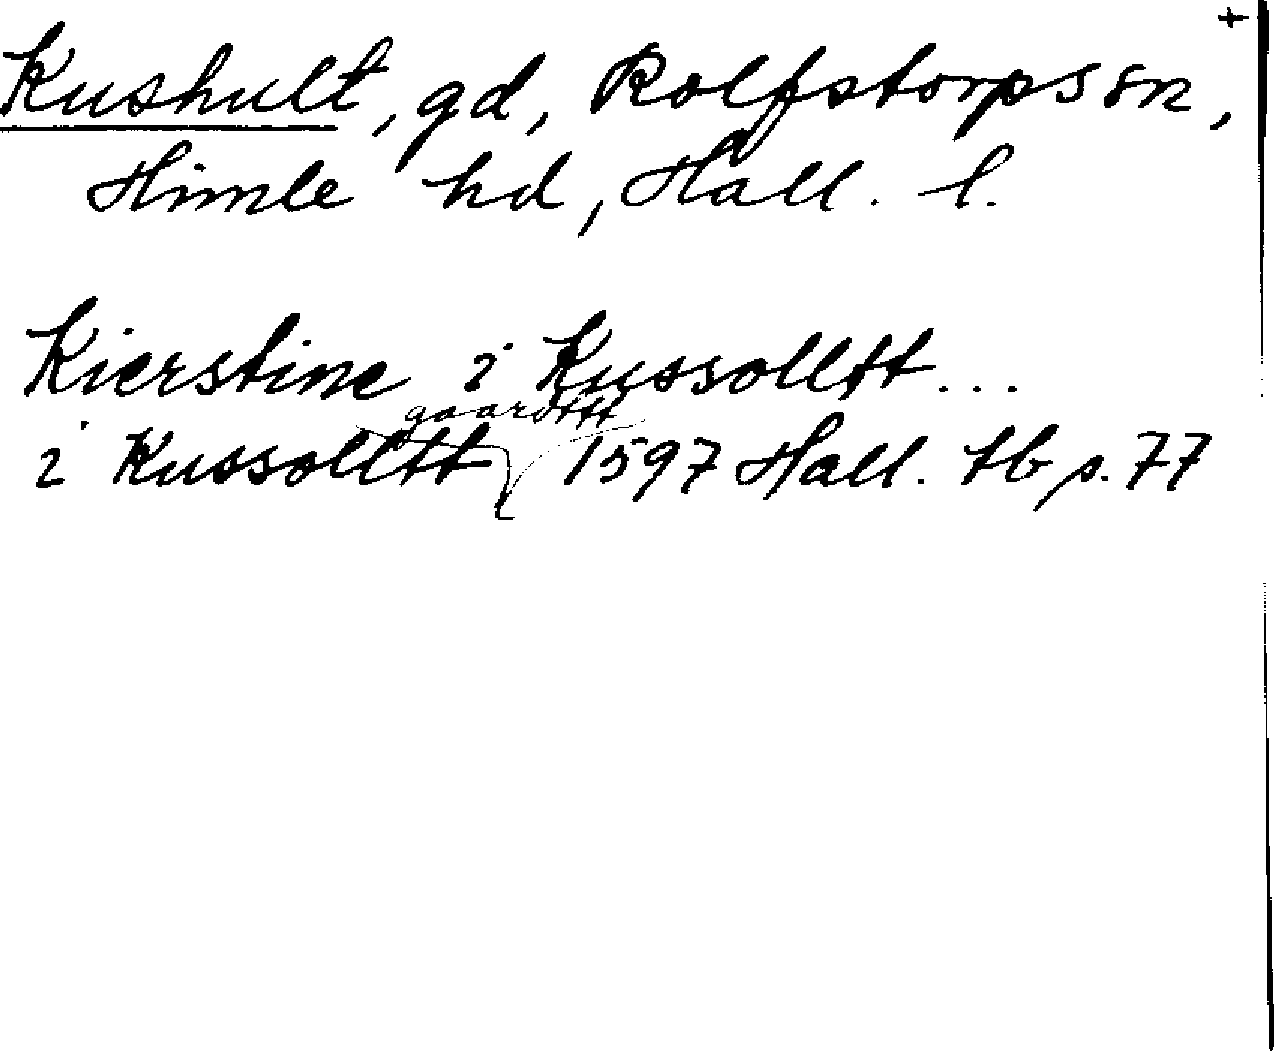 +
Kushult, gd, Rolfstorps sn,
Himle hd, Hall. l.
Kierstine i Kussolltt...
gaardttt
i Kussolltt 1597 Hall. tb s. 77